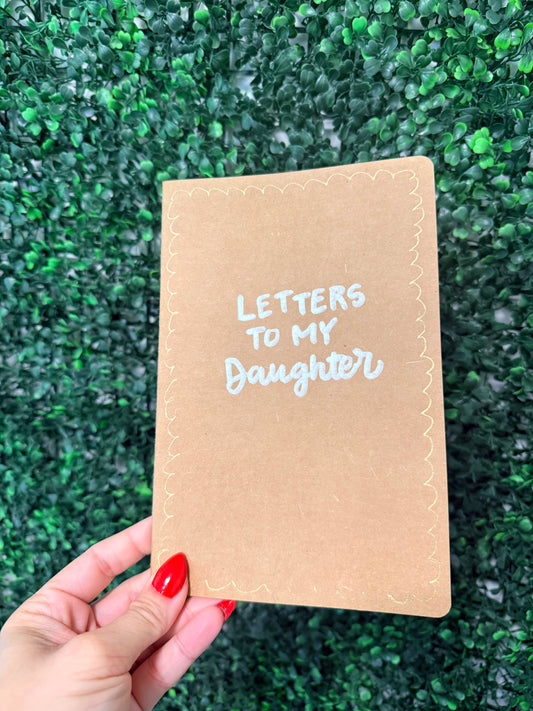 LETTERS
TO MY
Daughter